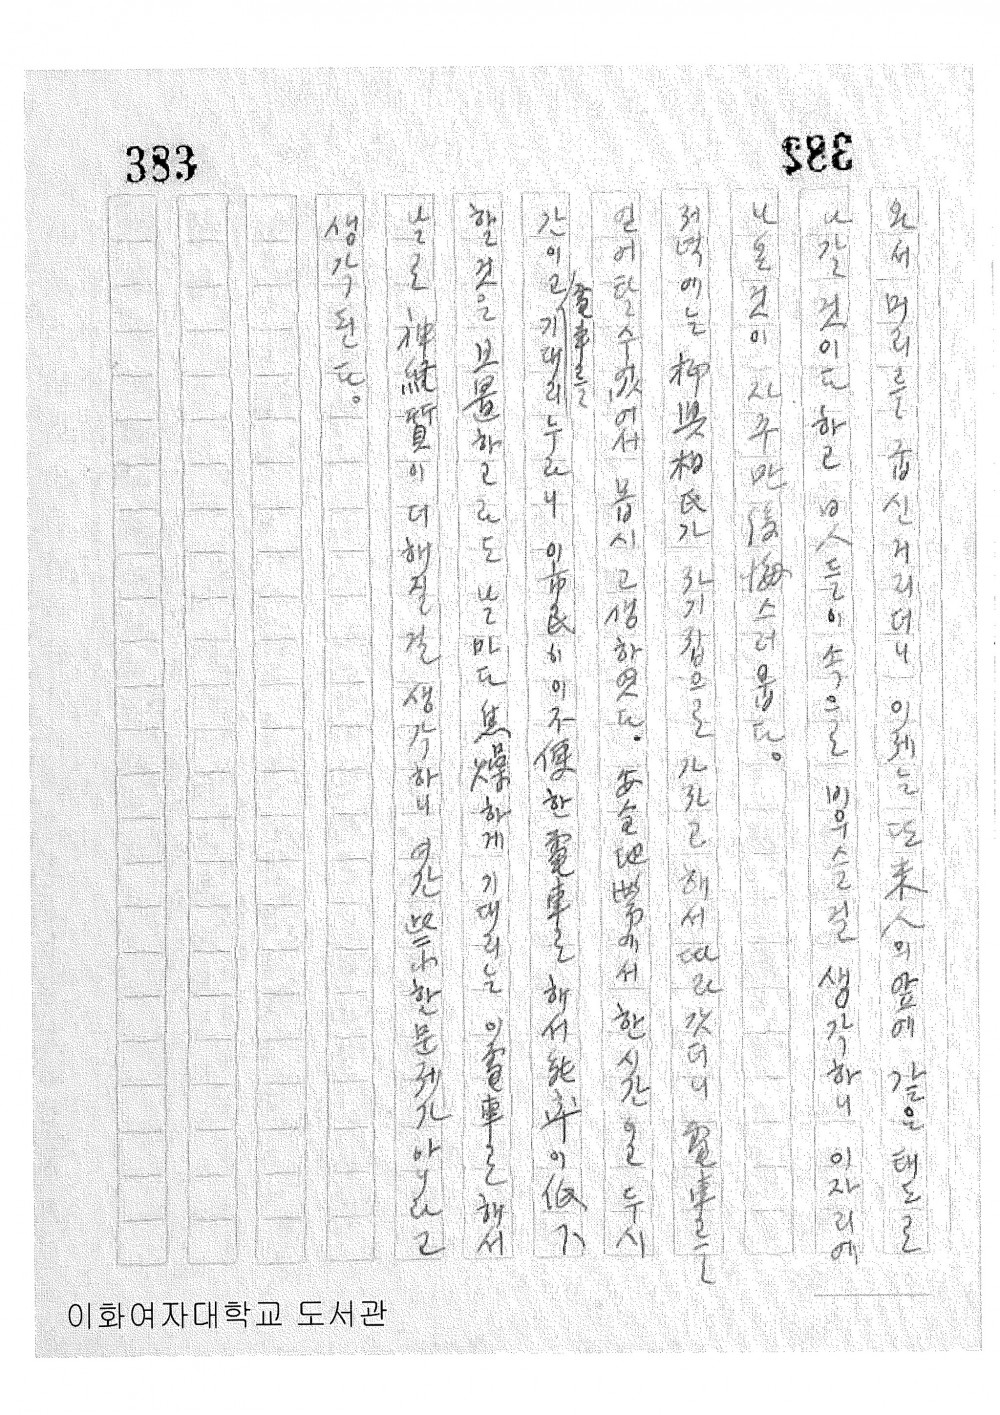 383
382
와서 머리를 굽신거리더니 이제는 또 美人의 앞에 같은 태도로
나갈 것이다 하고 뭇人들이 속으로 비우슬걸 생각하니 이자리에
나온것이 자주만 後悔스러웁다。
저녁에는 柳興相氏가 자기집으로 가자고 해서 따라갓더니 電車를
얻어탈수 없어서 몹시 고생하엿다。 安全地帶에서 한시간을 두시
간이고 電車를 기대리누라니 이 市民이 이 不便한 電車로 해서 能率이 低下
할것은 且置하고라도 날마다 焦燥하게 기대리는 이 電車로 해서
날로 神經質이 더해질걸 생각하니 여간 한 문제가 아니라고
생각된다。
이화여자대학교 도서관